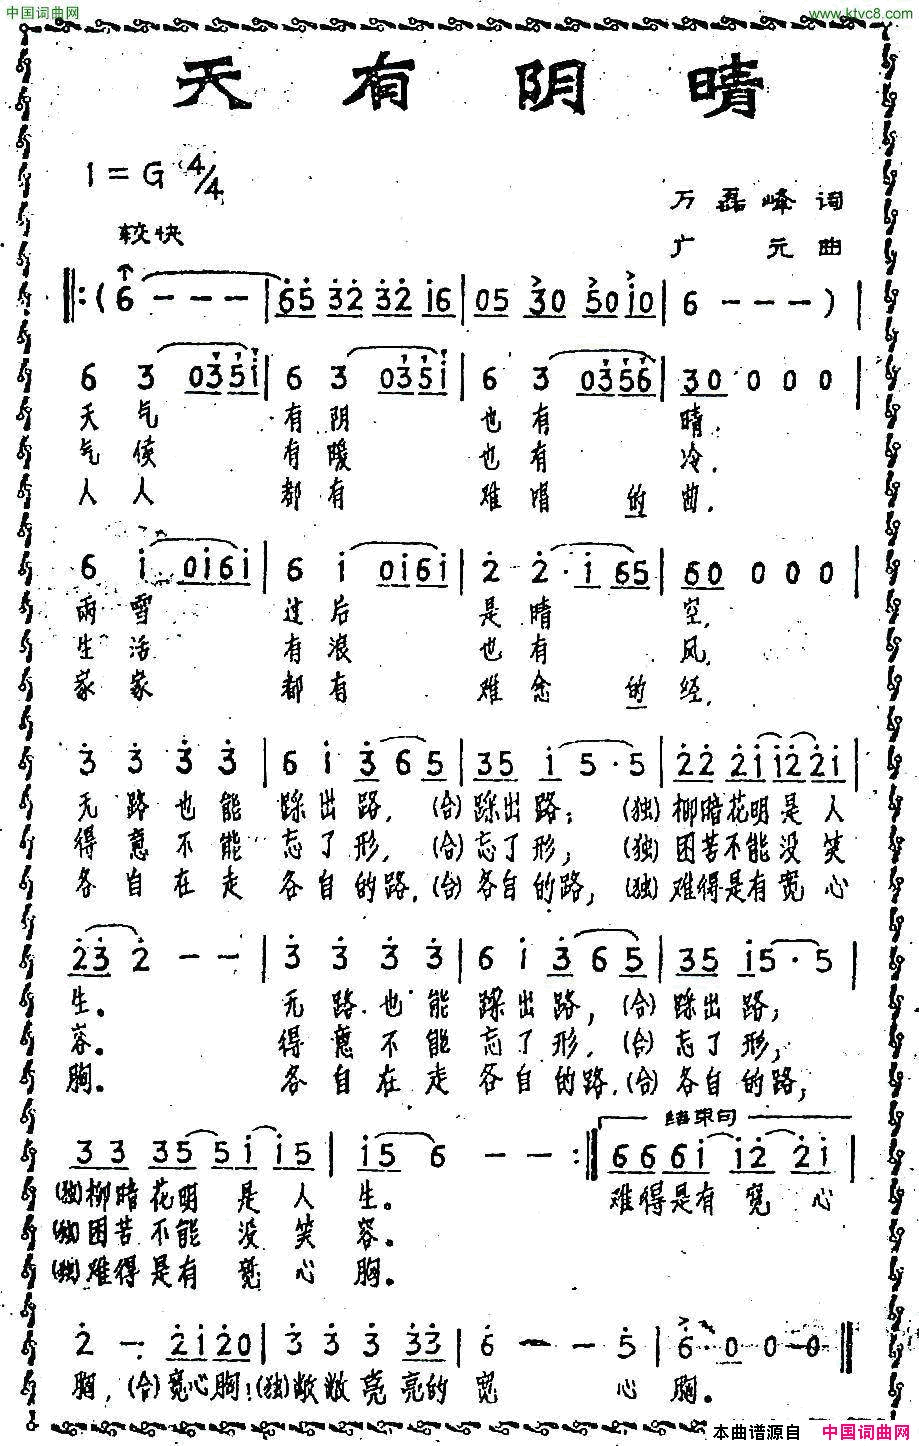 中国词曲网
www.ktvc8.com
天有阴晴
1=G 4/4
万磊峰词
较快
广元曲
‖:(6 - - - | 65 32 32 i6 | 05 30 50 i0 | 6 - - - ) |
6 3 035i | 6 3 035i | 6 3 0356 | 30 0 0 0 |
天气 有阴 也有 晴.
气候 有暖 也有 冷.
人人 都有 难唱 的曲.
6 i 0i6i | 6 i 0i6i | 2 2·i 65 | 60 0 0 0 |
雨雪 过后 是晴 空,
生活 有浪 也有 风,
家家 都有 难念 的经,
3 3 3 3 | 6 i 3 6 5 | 35 i 5·5 | 22 2i i2 2i |
无路也能 踩出路,(合)踩出路;(独)柳暗花明是人
得意不能 忘了形,(合)忘了形;(独)困苦不能没笑
各自在走 各自的路,(合)各自的路,(独)难得是有宽心
23 2 - - | 3 3 3 3 | 6 i 3 6 5 | 35 i5·5 |
生。 无路也能 踩出路,(合)踩出路;
容。 得意不能 忘了形,(合)忘了形;
胸。 各自在走 各自的路.(合)各自的路,
结束句
33 35 5i i5 | i5 6 - - :‖ 666i i2 2i |
(独)柳暗花明是人生。 难得是有宽心
(独)困苦不能没笑容。
(独)难得是有宽心胸。
2 - 2i 20 | 3 3 3 33 | 6 - - 5 | 6 0 0 0 ‖
胸,(合)宽心胸!(独)敞敞亮亮的宽心胸。
本曲谱源自 中国词曲网